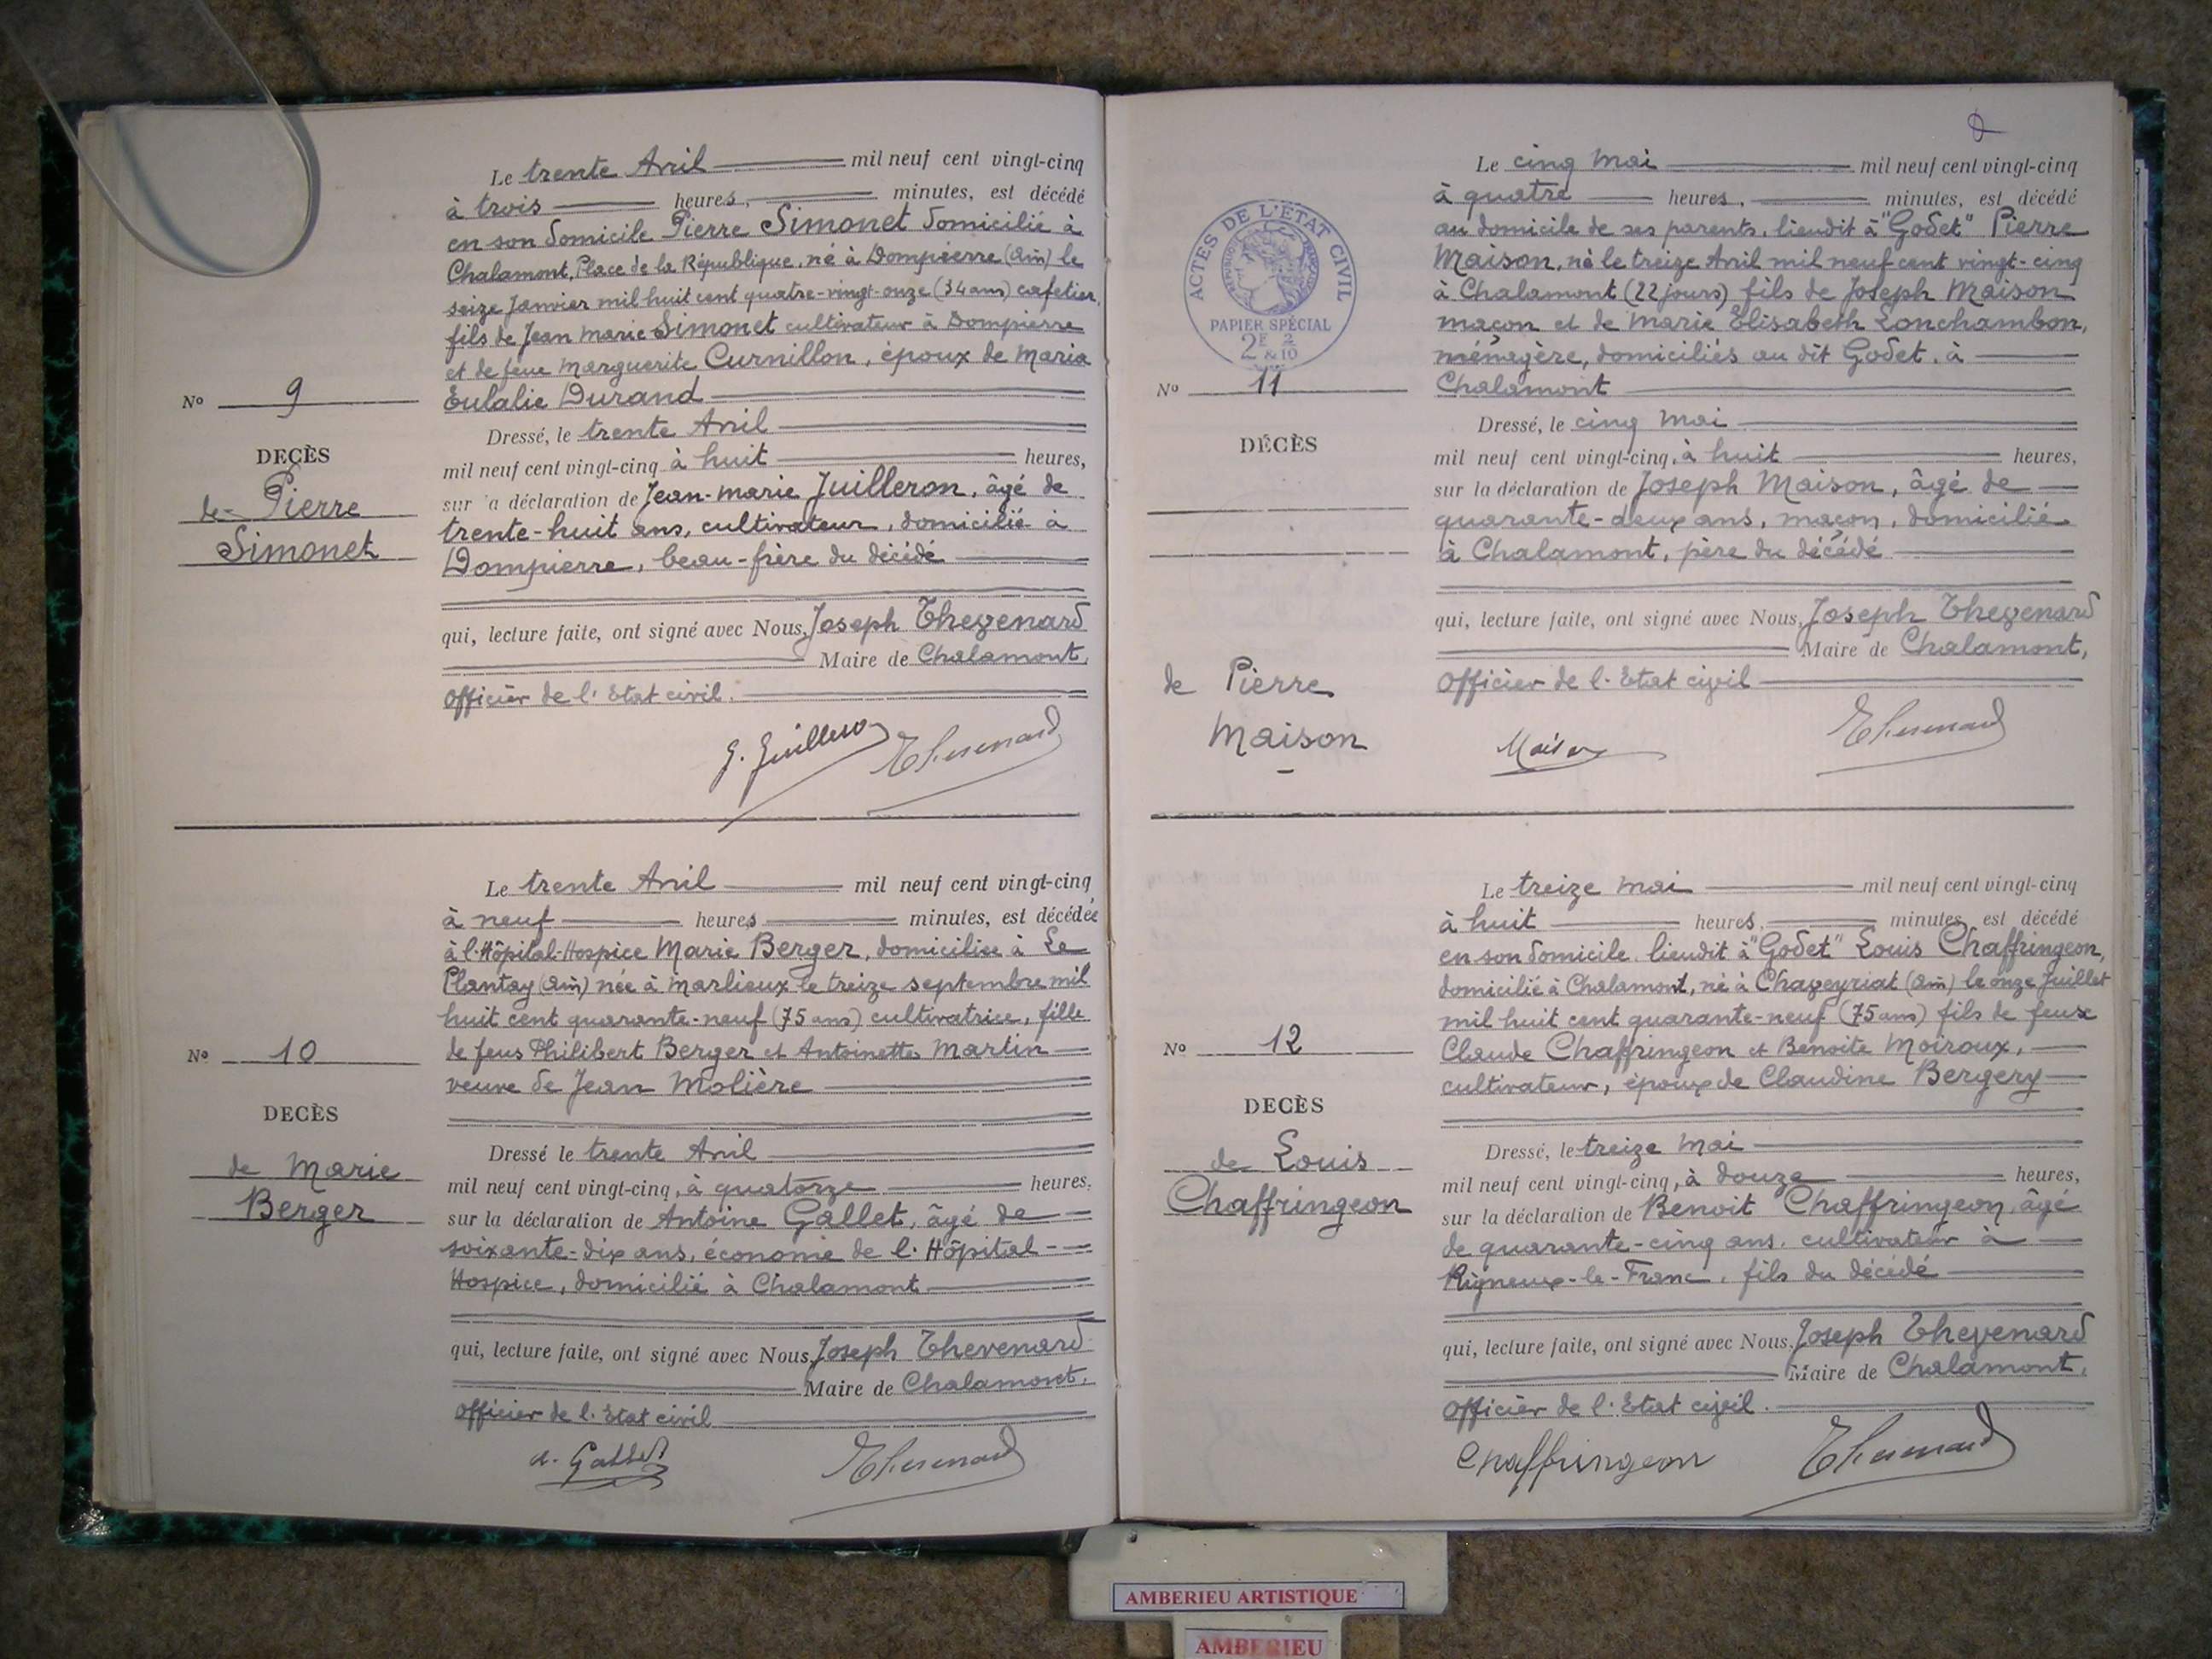 Le trente Avril mil neuf cent vingt-cinq
à trois heures, minutes, est décédé
en son domicile Pierre Simonet domicilié à
Chalamont, Place de la République, né à Dompierre (Ain) le
seize Janvier mil huit cent quatre-vingt-onze (34 ans) cafetier,
fils de Jean Marie Simonet cultivateur à Dompierre
et de feue Marguerite Curnillon, époux de Maria
Eulalie Durand
No 9
DECÈS
de Pierre
Simonet
Dressé, le trente Avril
mil neuf cent vingt-cinq à huit heures,
sur la déclaration de Jean-Marie Juilleron, âgé de
trente-huit ans, cultivateur, domicilié à
Dompierre, beau-frère du décédé
qui, lecture faite, ont signé avec Nous, Joseph Thevenard
Maire de Chalamont,
Officier de l'Etat civil.
Thevenard
Le trente Avril mil neuf cent vingt-cinq
à neuf heures minutes, est décédée
à l'Hôpital-Hospice Marie Berger, domiciliée à Le
Plantay (Ain) née à Marlieux le treize septembre mil
huit cent quarante-neuf (75 ans) cultivatrice, fille
de feus Philibert Berger et Antoinette Martin
veuve de Jean Molière
No 10
DECÈS
de Marie
Berger
Dressé le trente Avril
mil neuf cent vingt-cinq, à quatorze heures,
sur la déclaration de Antoine Gallet, âgé de
soixante-dix ans, économe de l'Hôpital-
Hospice, domicilié à Chalamont
qui, lecture faite, ont signé avec Nous, Joseph Thevenard
Maire de Chalamont,
Officier de l'Etat civil
A. Gallet Thevenard
Le cinq Mai mil neuf cent vingt-cinq
à quatre heures, minutes, est décédé
au domicile de ses parents, lieudit à "Godet" Pierre
Maison, né le treize Avril mil neuf cent vingt-cinq
à Chalamont (22 jours) fils de Joseph Maison
maçon et de Marie Elisabeth Lonchambon,
ménagère, domiciliés au dit Godet, à
Chalamont
ACTES DE L'ÉTAT CIVIL
PAPIER SPÉCIAL
No 11
DÉCÈS
de Pierre
Maison
Dressé, le cinq Mai
mil neuf cent vingt-cinq, à huit heures,
sur la déclaration de Joseph Maison, âgé de
quarante-deux ans, maçon, domicilié
à Chalamont, père du décédé
qui, lecture faite, ont signé avec Nous, Joseph Thevenard
Maire de Chalamont,
Officier de l'Etat civil
Maison Thevenard
Le treize Mai mil neuf cent vingt-cinq
à huit heures, minutes, est décédé
en son domicile lieudit à "Godet" Louis Chaffringeon,
domicilié à Chalamont, né à Chaveyriat (Ain) le onze Juillet
mil huit cent quarante-neuf (75 ans) fils de feux
Claude Chaffringeon et Benoite Moiroux,
cultivateur, époux de Claudine Bergery
No 12
DECÈS
de Louis
Chaffringeon
Dressé, le treize Mai
mil neuf cent vingt-cinq, à douze heures,
sur la déclaration de Benoit Chaffringeon, âgé
de quarante-cinq ans, cultivateur à
Rigneux-le-Franc, fils du décédé
qui, lecture faite, ont signé avec Nous, Joseph Thevenard
Maire de Chalamont,
Officier de l'Etat civil.
Chaffringeon Thevenard
AMBERIEU ARTISTIQUE
AMBERIEU